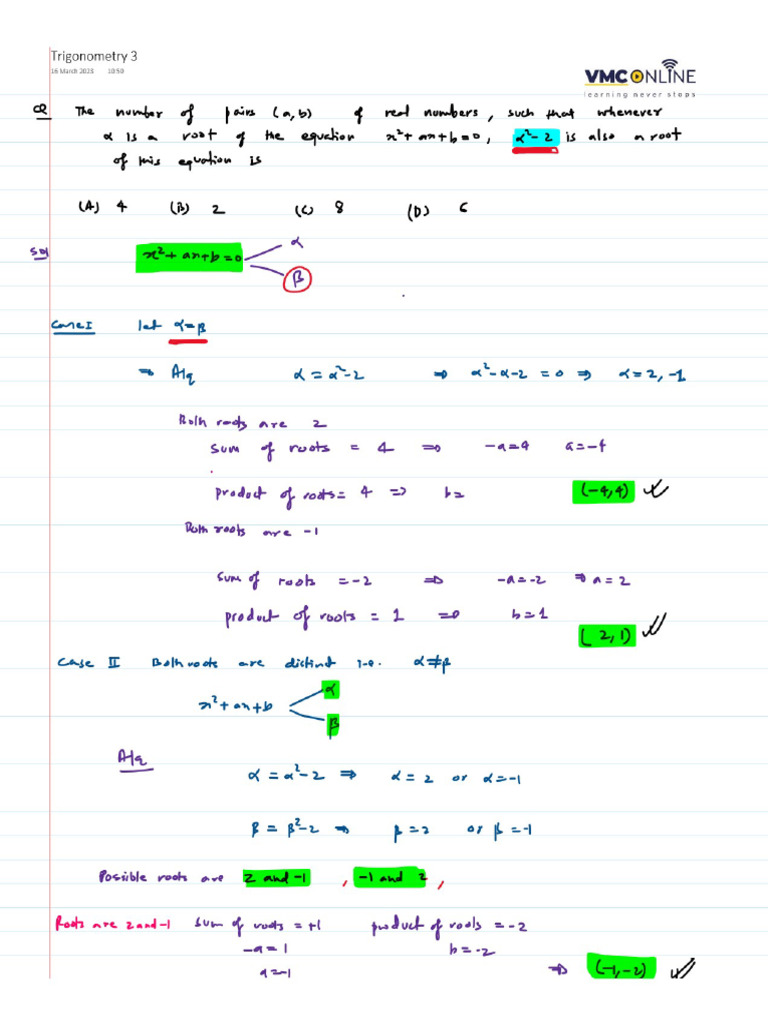 Trigonometry 3
16 March 2023 10:50
VMC ONLINE
learning never stops
Q The number of pairs (a,b) of real numbers, such that whenever
α is a root of the equation x²+ax+b=0, α²-2 is also a root
of this equation is
(A) 4 (B) 2 (C) 8 (D) 6
Sol x²+ax+b=0 α
β
Case I let α=β
⇒ Alq α = α²-2 ⇒ α²-α-2 = 0 ⇒ α=2, -1
Both roots are 2
Sum of roots = 4 ⇒ -a=4 a=-4
product of roots = 4 ⇒ b= (-4,4)
Both roots are -1
Sum of roots = -2 ⇒ -a=-2 ⇒ a=2
product of roots = 1 ⇒ b=1
(2,1)
Case II Both roots are distinct i.e. α≠β
x²+ax+b α
β
Alq
α = α²-2 ⇒ α=2 or α=-1
β = β²-2 ⇒ β=2 or β=-1
Possible roots are 2 and -1 , -1 and 2 ,
Roots are 2 and -1 Sum of roots = +1 product of roots = -2
-a=1 b=-2
a=-1 ⇒ (-1,-2)